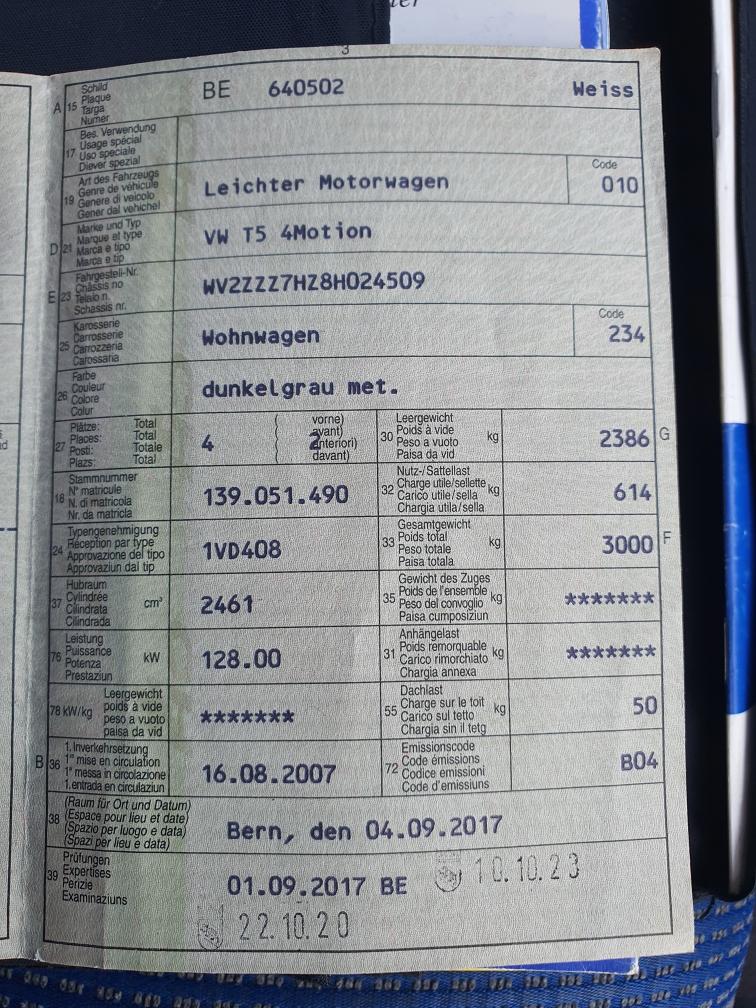 3
A 15 Schild
Plaque
Targa
Numer
BE 640502 Weiss
17 Bes. Verwendung
Usage spécial
Uso speciale
Diever spezial
19 Art des Fahrzeugs
Genre de véhicule
Genere di veicolo
Gener dal vehichel
Leichter Motorwagen
Code
010
D 21 Marke und Typ
Marque et type
Marca e tipo
Marca e tip
VW T5 4Motion
E 23 Fahrgestell-Nr.
Châssis no
Telaio n.
Schassis nr.
WV2ZZZ7HZ8H024509
25 Karosserie
Carrosserie
Carrozzeria
Carossaria
Wohnwagen
Code
234
26 Farbe
Couleur
Colore
Colur
dunkelgrau met.
27 Plätze: Total
Places: Total
Posti: Totale
Plazs: Total
4
vorne)
avant)
anteriori)
davant)
2
30 Leergewicht
Poids à vide
Peso a vuoto
Paisa da vid
kg
2386 G
18 Stammnummer
N° matricule
N. di matricola
Nr. da matricla
139.051.490
32 Nutz-/Sattellast
Charge utile/sellette
Carico utile/sella
Chargia utila/sella
kg
614
24 Typengenehmigung
Réception par type
Approvazione del tipo
Approvaziun dal tip
1VD408
33 Gesamtgewicht
Poids total
Peso totale
Paisa totala
kg
3000 F
37 Hubraum
Cylindrée
Cilindrata
Cilindrada
cm³
2461
35 Gewicht des Zuges
Poids de l'ensemble
Peso del convoglio
Paisa cumposiziun
kg
*******
76 Leistung
Puissance
Potenza
Prestaziun
kW
128.00
31 Anhängelast
Poids remorquable
Carico rimorchiato
Chargia annexa
kg
*******
78 kW/kg Leergewicht
poids à vide
peso a vuoto
paisa da vid
*******
55 Dachlast
Charge sur le toit
Carico sul tetto
Chargia sin il tetg
kg
50
B 36 1. Inverkehrsetzung
1re mise en circulation
1a messa in circolazione
1. entrada en circulaziun
16.08.2007
72 Emissionscode
Code émissions
Codice emissioni
Code d'emissiuns
B04
38 (Raum für Ort und Datum)
(Espace pour lieu et date)
(Spazio per luogo e data)
(Spazi per lieu e data)
Bern, den 04.09.2017
39 Prüfungen
Expertises
Perizie
Examinaziuns
01.09.2017 BE
10.10.23
22.10.20